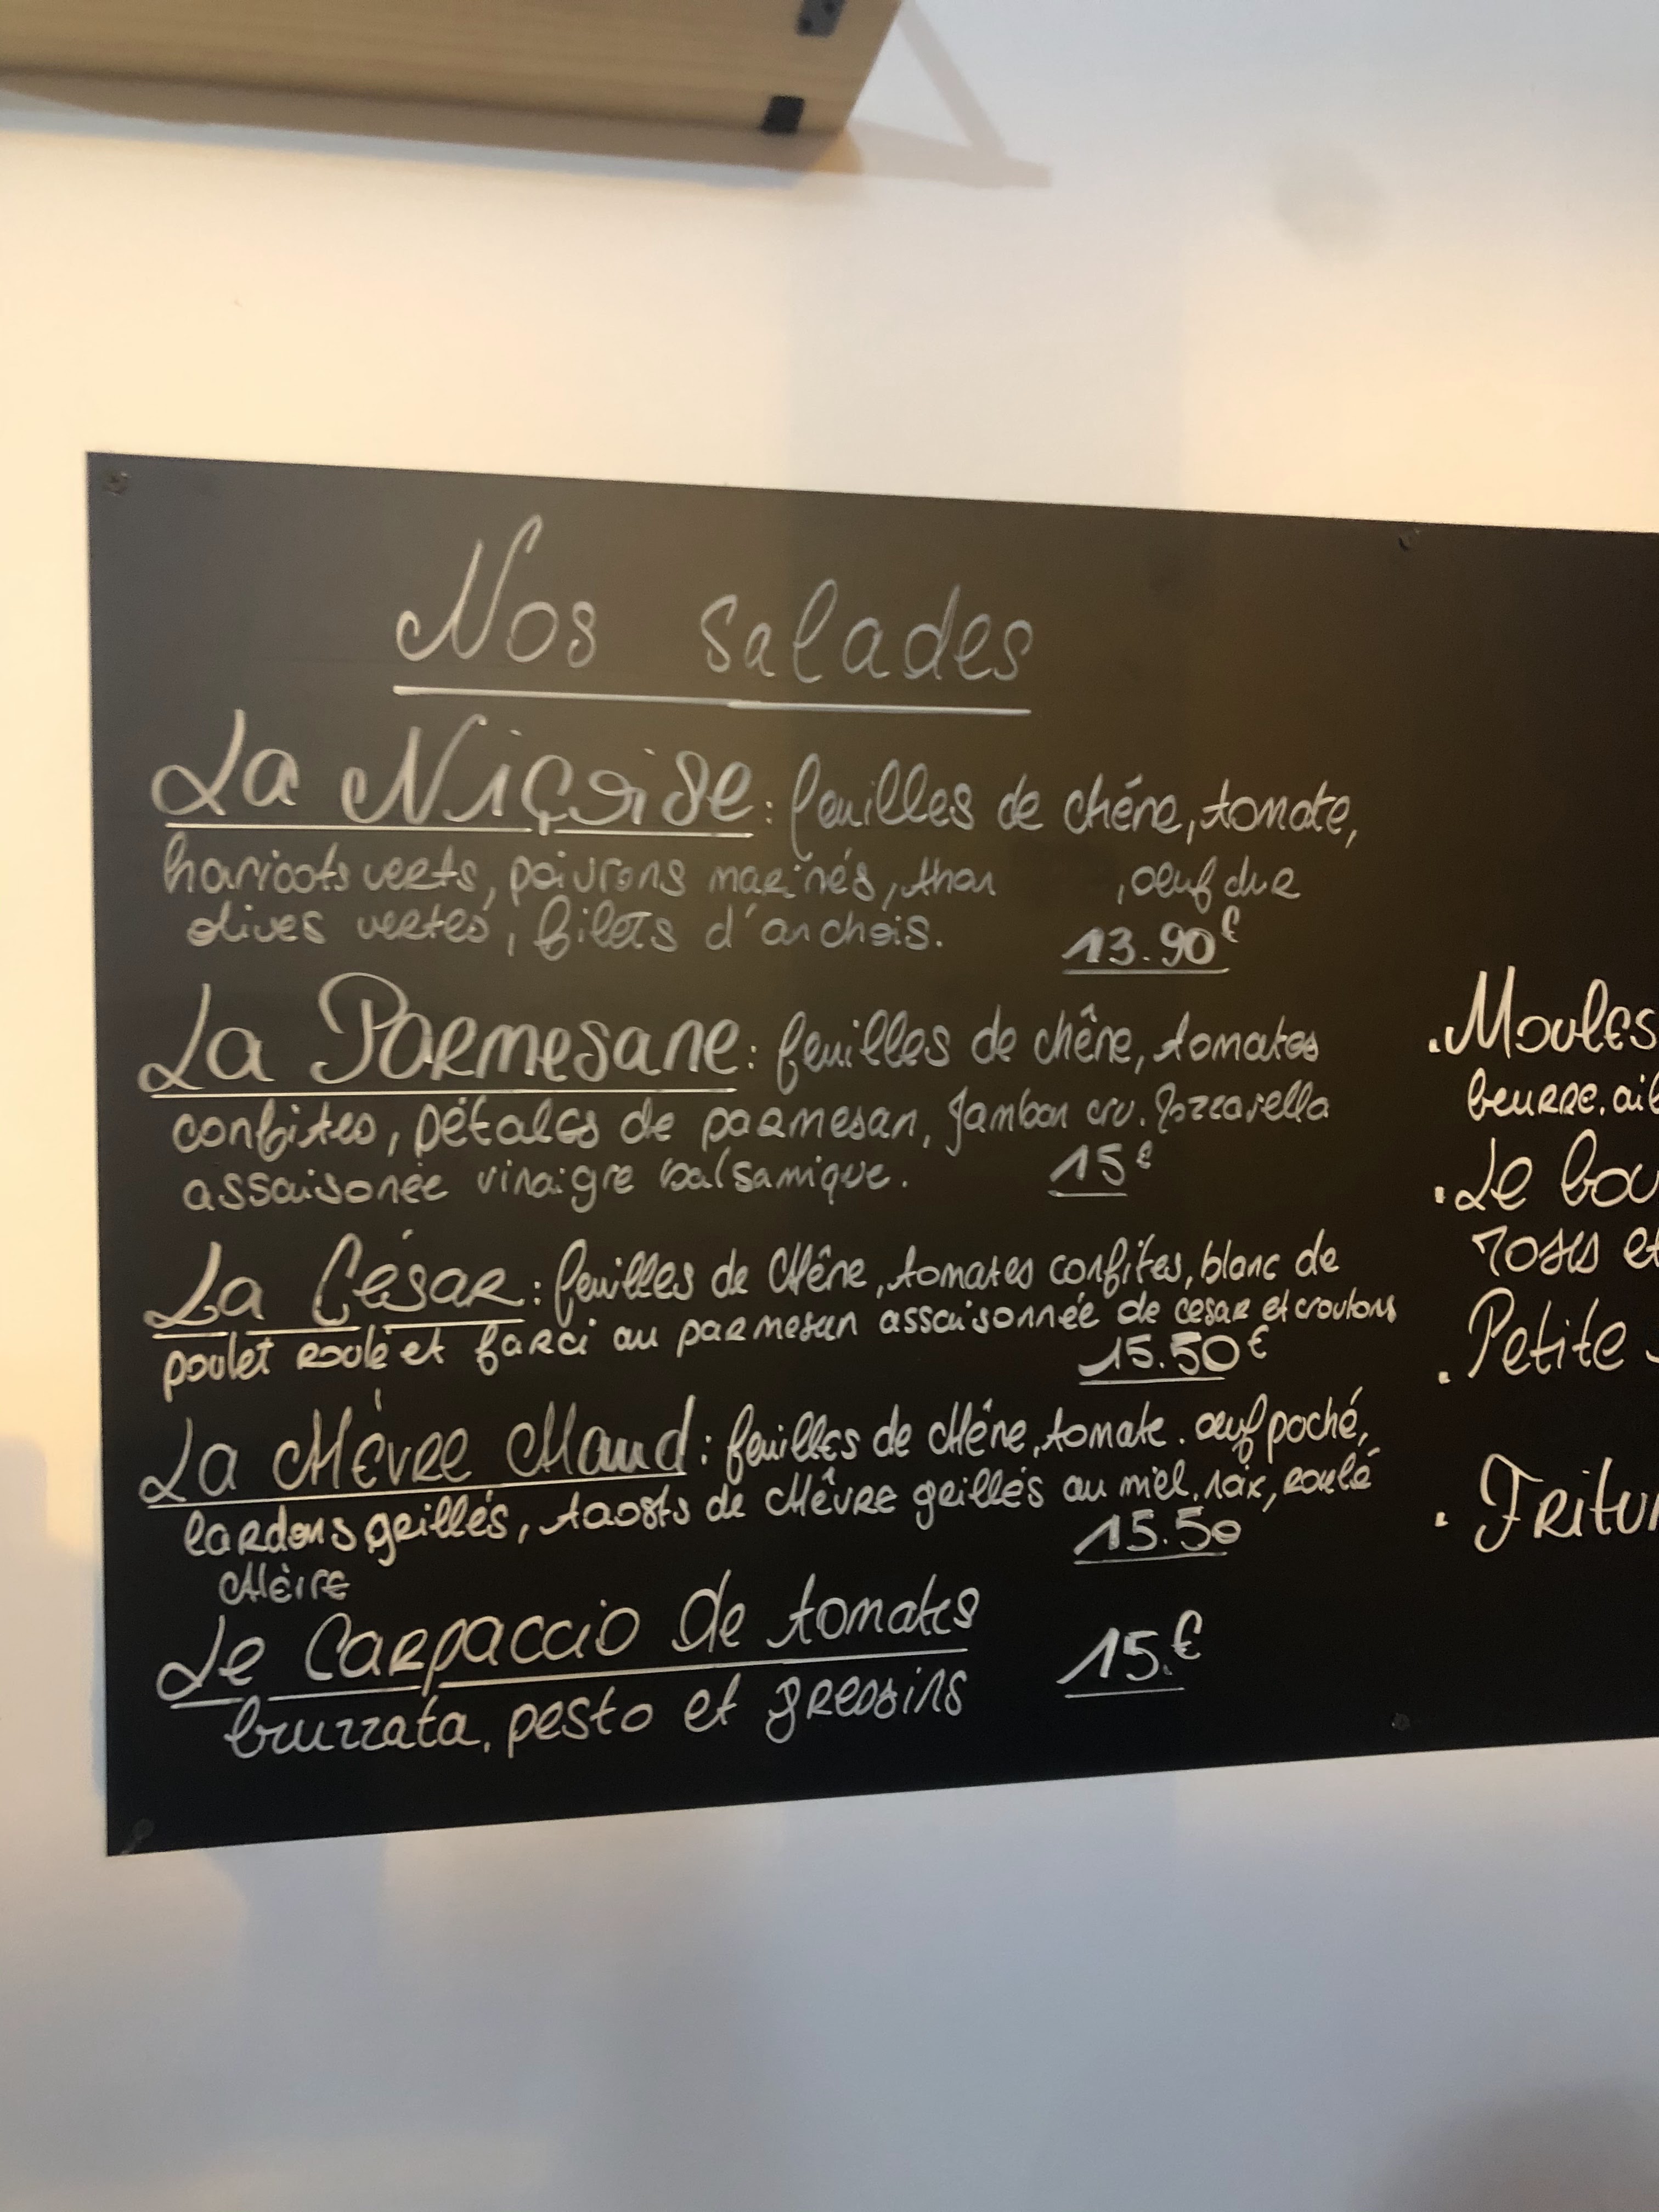 Nos salades
La Niçoise : feuilles de chéne, tomate,
haricots verts, poivrons marinés, thon , oeuf dur
olives vertes, filets d'anchois. 13.90€
La Parmesane : feuilles de chêne, tomates
confites, pétales de parmesan, Jambon cru.
assaisonée vinaigre balsamique. 15€
La César : feuilles de Chêne, tomates confites, blanc de
poulet roulé et farci au parmesan assaisonnée de cesar et croutons
15.50€
La Chèvre Chaud : feuilles de Chêne, tomate. œuf poché,
lardons grillés, taosts de Chêvre grillés au miel, noix, roulé
15.50
Chèire
Le Carpaccio de tomates 15.€
bruzzata, pesto et gressins
. Moules
beurre. ail
. Le bou
roses et
. Petite
. Fritur